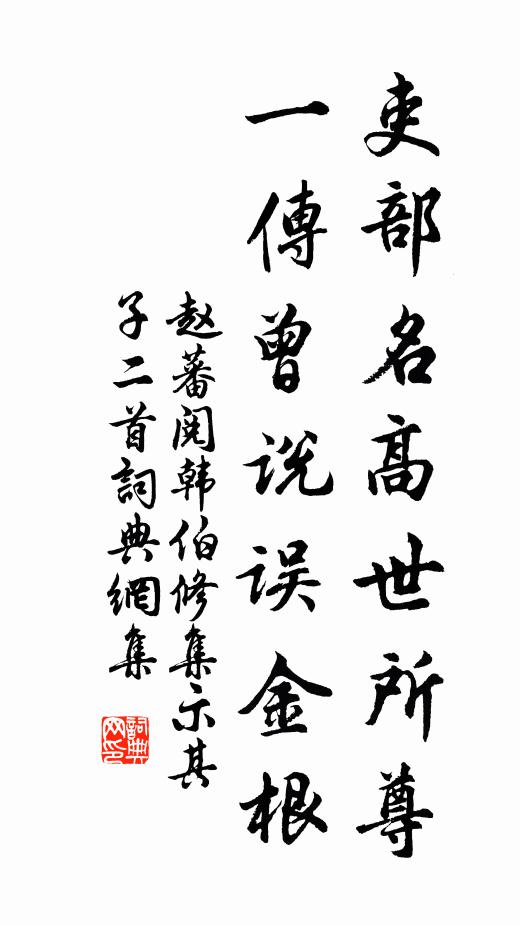 吏部名高世所尊
一傳曾说误金根
赵蕃阅韩伯修集示其
子二首詞典網集
詞典網印